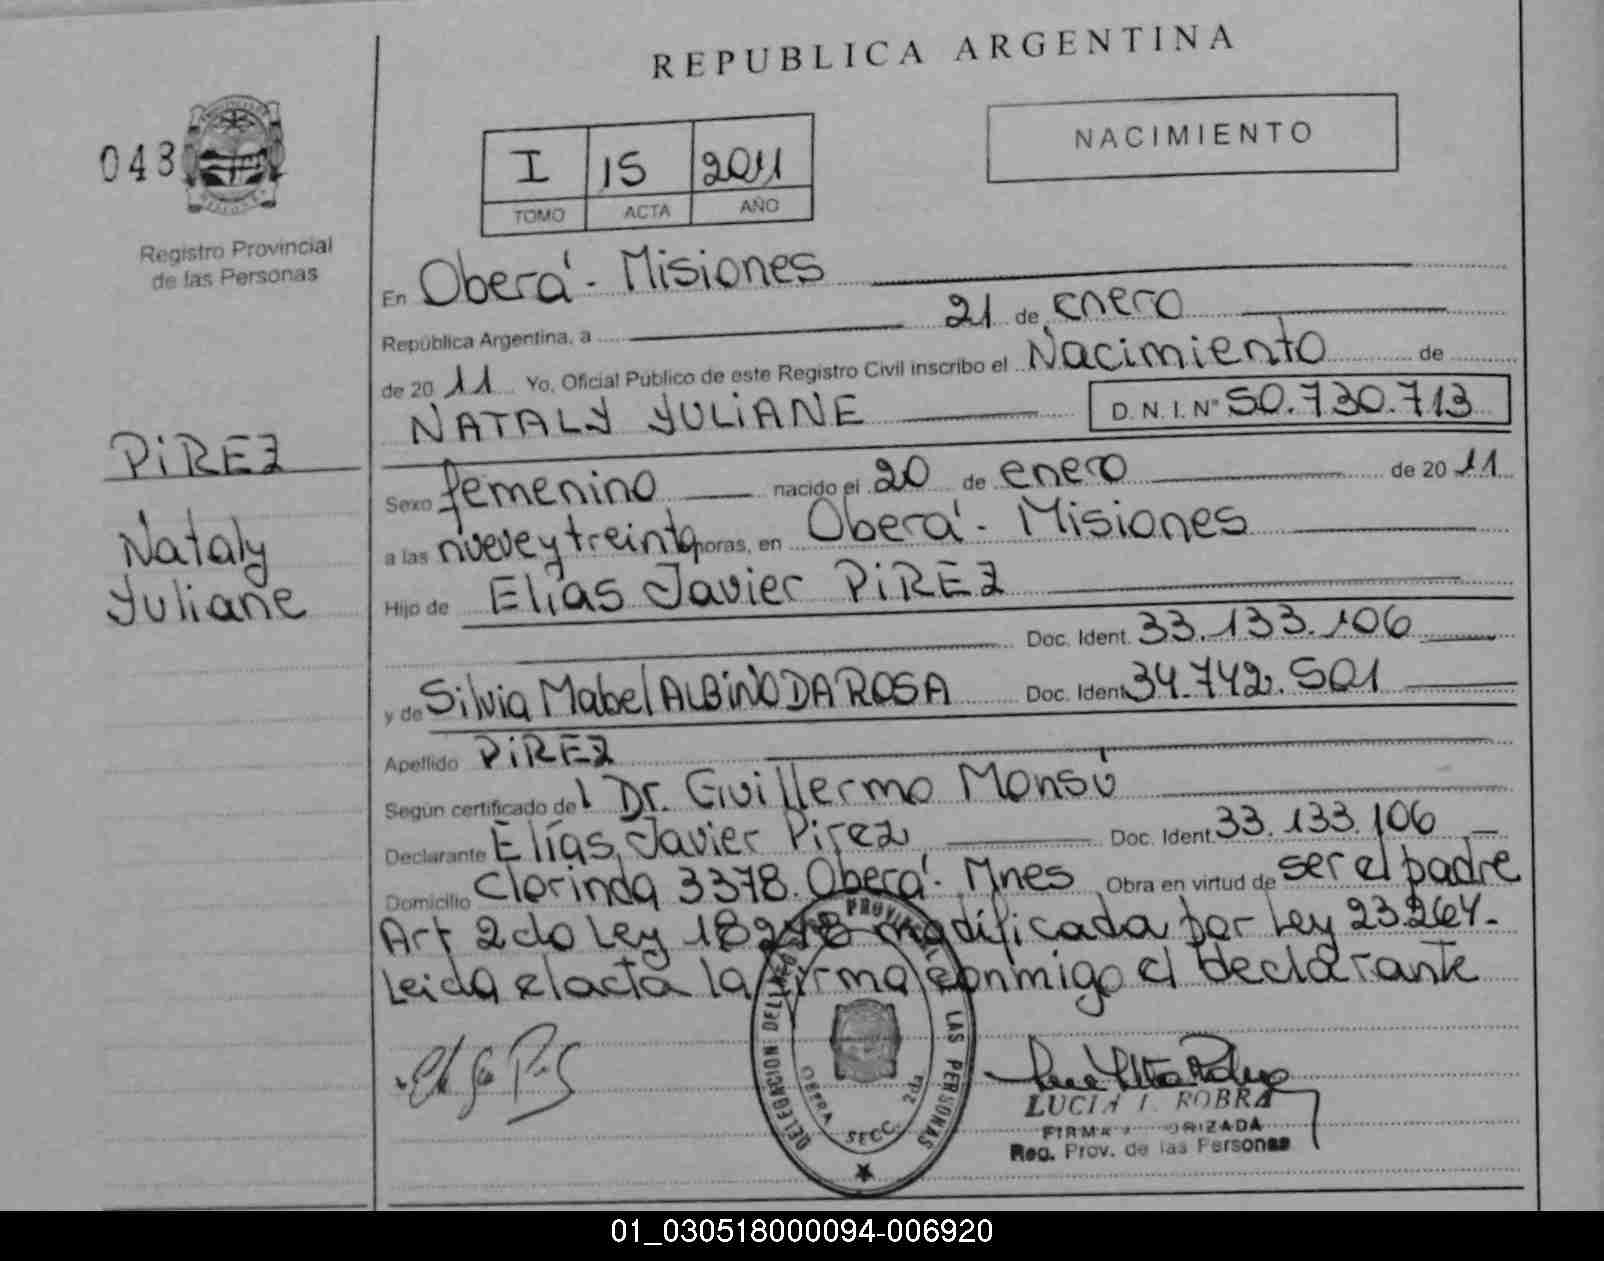 REPUBLICA ARGENTINA
043
Registro Provincial
de las Personas
I 15 2011
TOMO ACTA AÑO
NACIMIENTO
En Oberá - Misiones
República Argentina, a 21 de enero
de 20 11 Yo, Oficial Público de este Registro Civil inscribo el Nacimiento de
NATALY YULIANE D.N.I.Nº 50.730.713
PIREZ
Nataly
Yuliane
Sexo femenino nacido el 20 de enero de 20 11
a las nueve y treinta horas, en Oberá - Misiones
Hijo de Elías Javier PIREZ
Doc. Ident. 33.133.106
y de Silvia Mabel ALBINO DA ROSA Doc. Ident 34.742.501
Apellido PIREZ
Según certificado del Dr. Guillermo Monsú
Declarante Elías Javier Pirez Doc. Ident. 33.133.106
Domicilio Clorinda 3378. Oberá - Mnes Obra en virtud de ser el padre
Art 2do Ley 18248 modificada por Ley 23.264-
Leida el acta la firma conmigo el declarante
DELEGACION DEL REGISTRO PROVINCIAL DE LAS PERSONAS
OBERA SECC. 2da
LUCIA I. ROBRA
FIRMA AUTORIZADA
Reg. Prov. de las Personas
01_030518000094-006920